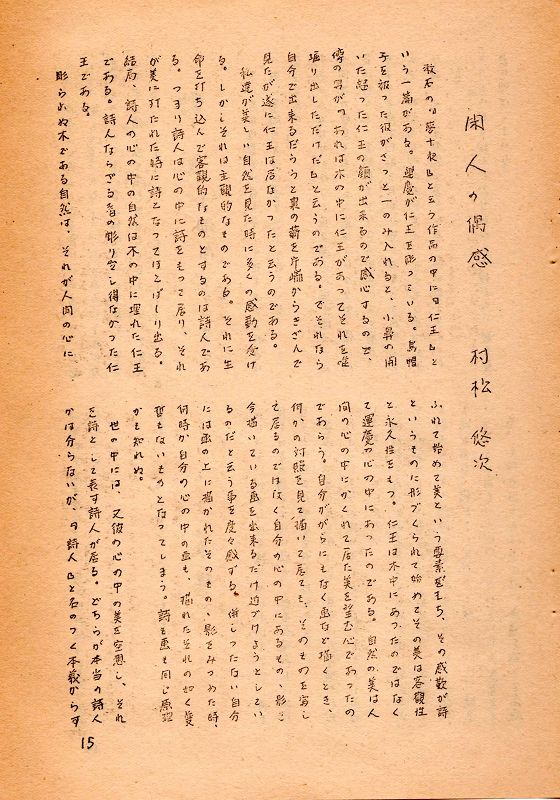 閑人の偶感
村松 悠次
漱石の「夢十夜」と云う作品の中に「仁王」と
いう一篇がある。運慶が仁王を彫っている。烏帽
子を被った彼がさっと一のみ入れると、小鼻の開
いた怒った仁王の顔が出来るので感心するので、
傍の男が「あれは木の中に仁王があってそれを唯
堀り出しただけだ」と云うのである。でそれなら
自分で出来るだらうと裏の薪を片端からきざんで
見たが遂に仁王は居なかったと云うのである。
私達が美しい自然を見た時に多くの感動を受け
る。しかしそれは主観的なものである。それに生
命を打ち込んで客観的なものとするのは詩人であ
る。つまり詩人は心の中に詩をもって居り、それ
が美に打たれた時に詩となってほとばしり出る。
結局、詩人の心の中の自然は木の中に埋れた仁王
である。詩人ならざる者の彫り出し得なかった仁
王である。
彫られぬ木である自然は、それが人間の心に
ふれて始めて美という要素をもち、その感歎が詩
というものに形づくられて始めてその美は客観性
と永久性をもつ。仁王は木中にあったのではなく
て運慶の心の中にあったのである。自然の美は人
間の心の中にかくれて居た美を望む心であったの
であらう。自分ががらにもなく画など描くとき、
何かの対照を見て描いて居ても、そのものを写し
て居るのではなく自分の心の中にあるもの、影を
今描いている画を出来るだけ近づけようとしてい
るのだと云う事を度々感ずる。併しつたない自分
には画の上に描かれたそのもの、影をみつめた時、
何時か自分の心の中の画も、描れたそれの如く
もないものとなってしまう。詩も画も同じ原理
かも知れぬ。
世の中には、又彼の心の中の美を空想し、それ
を詩として表す詩人が居る。どちらが本当の詩人
かは分らないが、「詩人」と名のつく本義からす
15